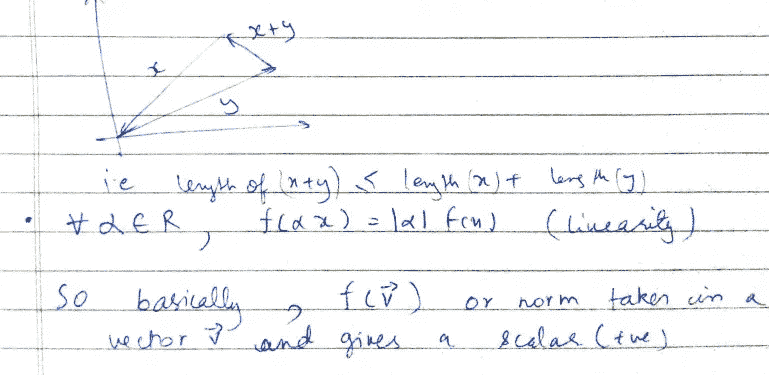 x+y
x
y
i.e length of (x+y) ≤ length (x) + length (y)
• ∀ α ∈ R, f(αx) = |α| f(x) (linearity)
So basically, f(v⃗) or norm taken in a
vector v⃗ and gives a scalar (+ve)